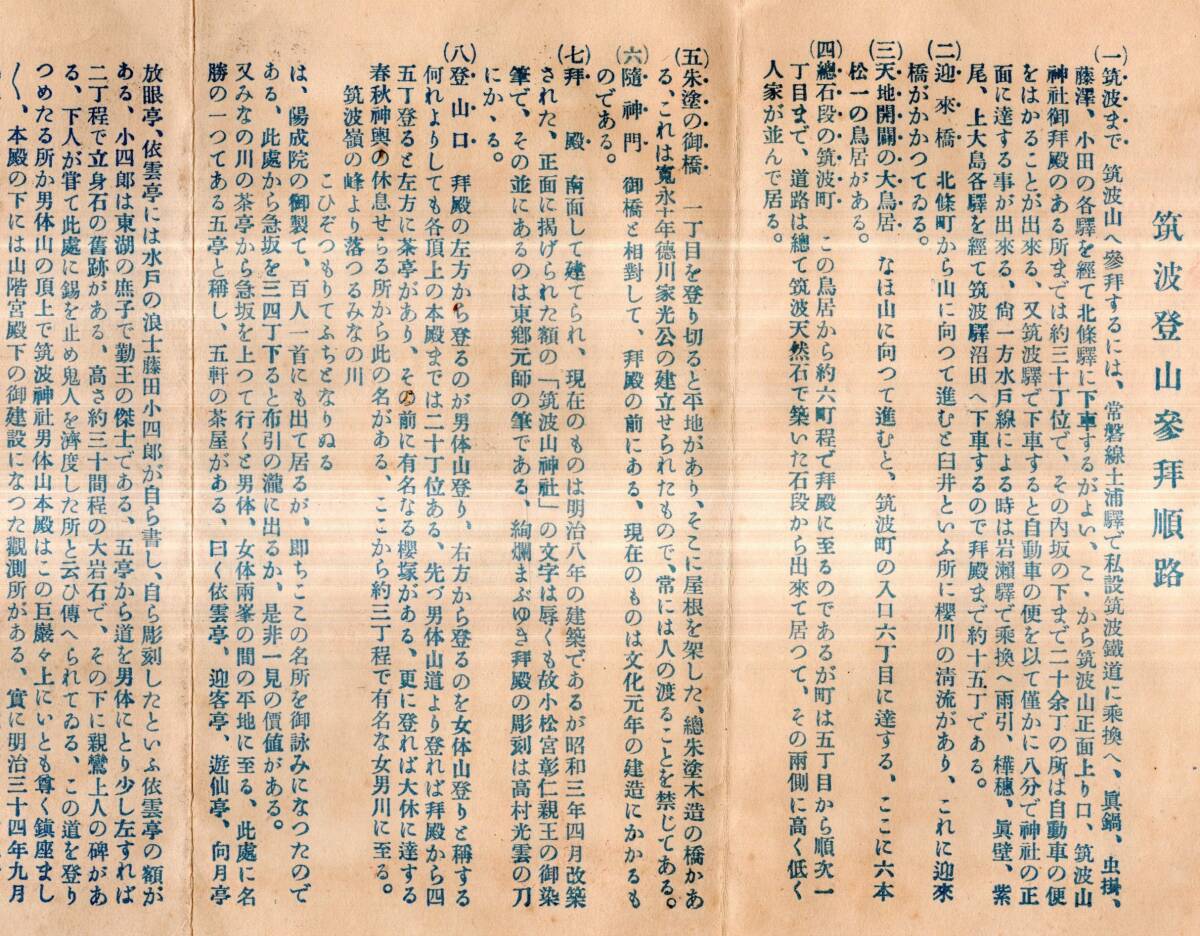 筑波登山參拜順路
(一)筑波まで　筑波山へ參拜するには、常磐線土浦驛で私設筑波鐵道に乘換へ、眞鍋、虫掛、
藤澤、小田の各驛を經て北條驛に下車するがよい、こゝから筑波山正面上り口、筑波山
神社御拜殿のある所までは約三十丁位で、その內坂の下まで二十余丁の所は自動車の便
をはかることが出來る、又筑波驛で下車すると自動車の便を以て僅かに八分で神社の正
面に達する事が出來る、尙一方水戶線による時は岩瀨驛で乘換へ雨引、樺穗、眞壁、紫
尾、上大島各驛を經て筑波驛沼田へ下車するので拜殿まで約十五丁である。
(二)迎來橋　北條町から山に向つて進むと臼井といふ所に櫻川の淸流があり、これに迎來
橋がかかつてゐる。
(三)天地開闢の大鳥居　なほ山に向つて進むと、筑波町の入口六丁目に達する、ここに六本
松一の鳥居がある。
(四)總石段の筑波町　この鳥居から約六町程で拜殿に至るのであるが町は五丁目から順次一
丁目まで、道路は總て筑波天然石で築いた石段から出來て居つて、その兩側に高く低く
人家が並んで居る。
(五)朱塗の御橋　一丁目を登り切ると平地があり、そこに屋根を架した、總朱塗木造の橋があ
る、これは寬永十年德川家光公の建立せられたもので、常には人の渡ることを禁じてある。
(六)隨神門　御橋と相對して、拜殿の前にある、現在のものは文化元年の建造にかかるも
のである。
(七)拜殿　南面して建てられ、現在のものは明治八年の建築であるが昭和三年四月改築
された、正面に揭げられた額の「筑波山神社」の文字は辱くも故小松宮彰仁親王の御染
筆で、その並にあるのは東鄕元師の筆である、絢爛まぶゆき拜殿の彫刻は高村光雲の刀
にかゝる。
(八)登山口　拜殿の左方から登るのが男体山登り、右方から登るのを女体山登りと稱する
何れよりしても各頂上の本殿までは二十丁位ある、先づ男体山道より登れば拜殿から四
五丁登ると左方に茶亭があり、その前に有名なる櫻塚がある、更に登れば大休に達する
春秋神輿の休息せらる所から此の名がある、ここから約三丁程で有名な女男川に至る。
筑波嶺の峰より落つるみなの川
こひぞつもりてふちとなりぬる
は、陽成院の御製て、百人一首にも出て居るが、即ちここの名所を御詠みになつたので
ある、此處から急坂を三四丁下ると布引の瀧に出るか、是非一見の價値がある。
又みなの川の茶亭から急坂を上つて行くと男体、女体兩峯の間の平地に至る、此處に名
勝の一つてある五亭と稱し、五軒の茶屋がある、曰く依雲亭、迎客亭、遊仙亭、向月亭
放眼亭、依雲亭には水戶の浪士藤田小四郞が自ら書し、自ら彫刻したといふ依雲亭の額が
ある、小四郞は東湖の庶子で勤王の傑士である、五亭から道を男体にとり少し左すれば
二丁程で立身石の舊跡がある、高さ約三十間程の大岩石で、その下に親鸞上人の碑があ
る、下人が嘗て此處に錫を止め鬼人を濟度した所と云ひ傳へられてゐる、この道を登り
つめたる所か男体山の頂上で筑波神社男体山本殿はこの巨巖々上にいとも尊く鎭座まし
〱、本殿の下には山階宮殿下の御建設になつた觀測所がある、實に明治三十四年九月